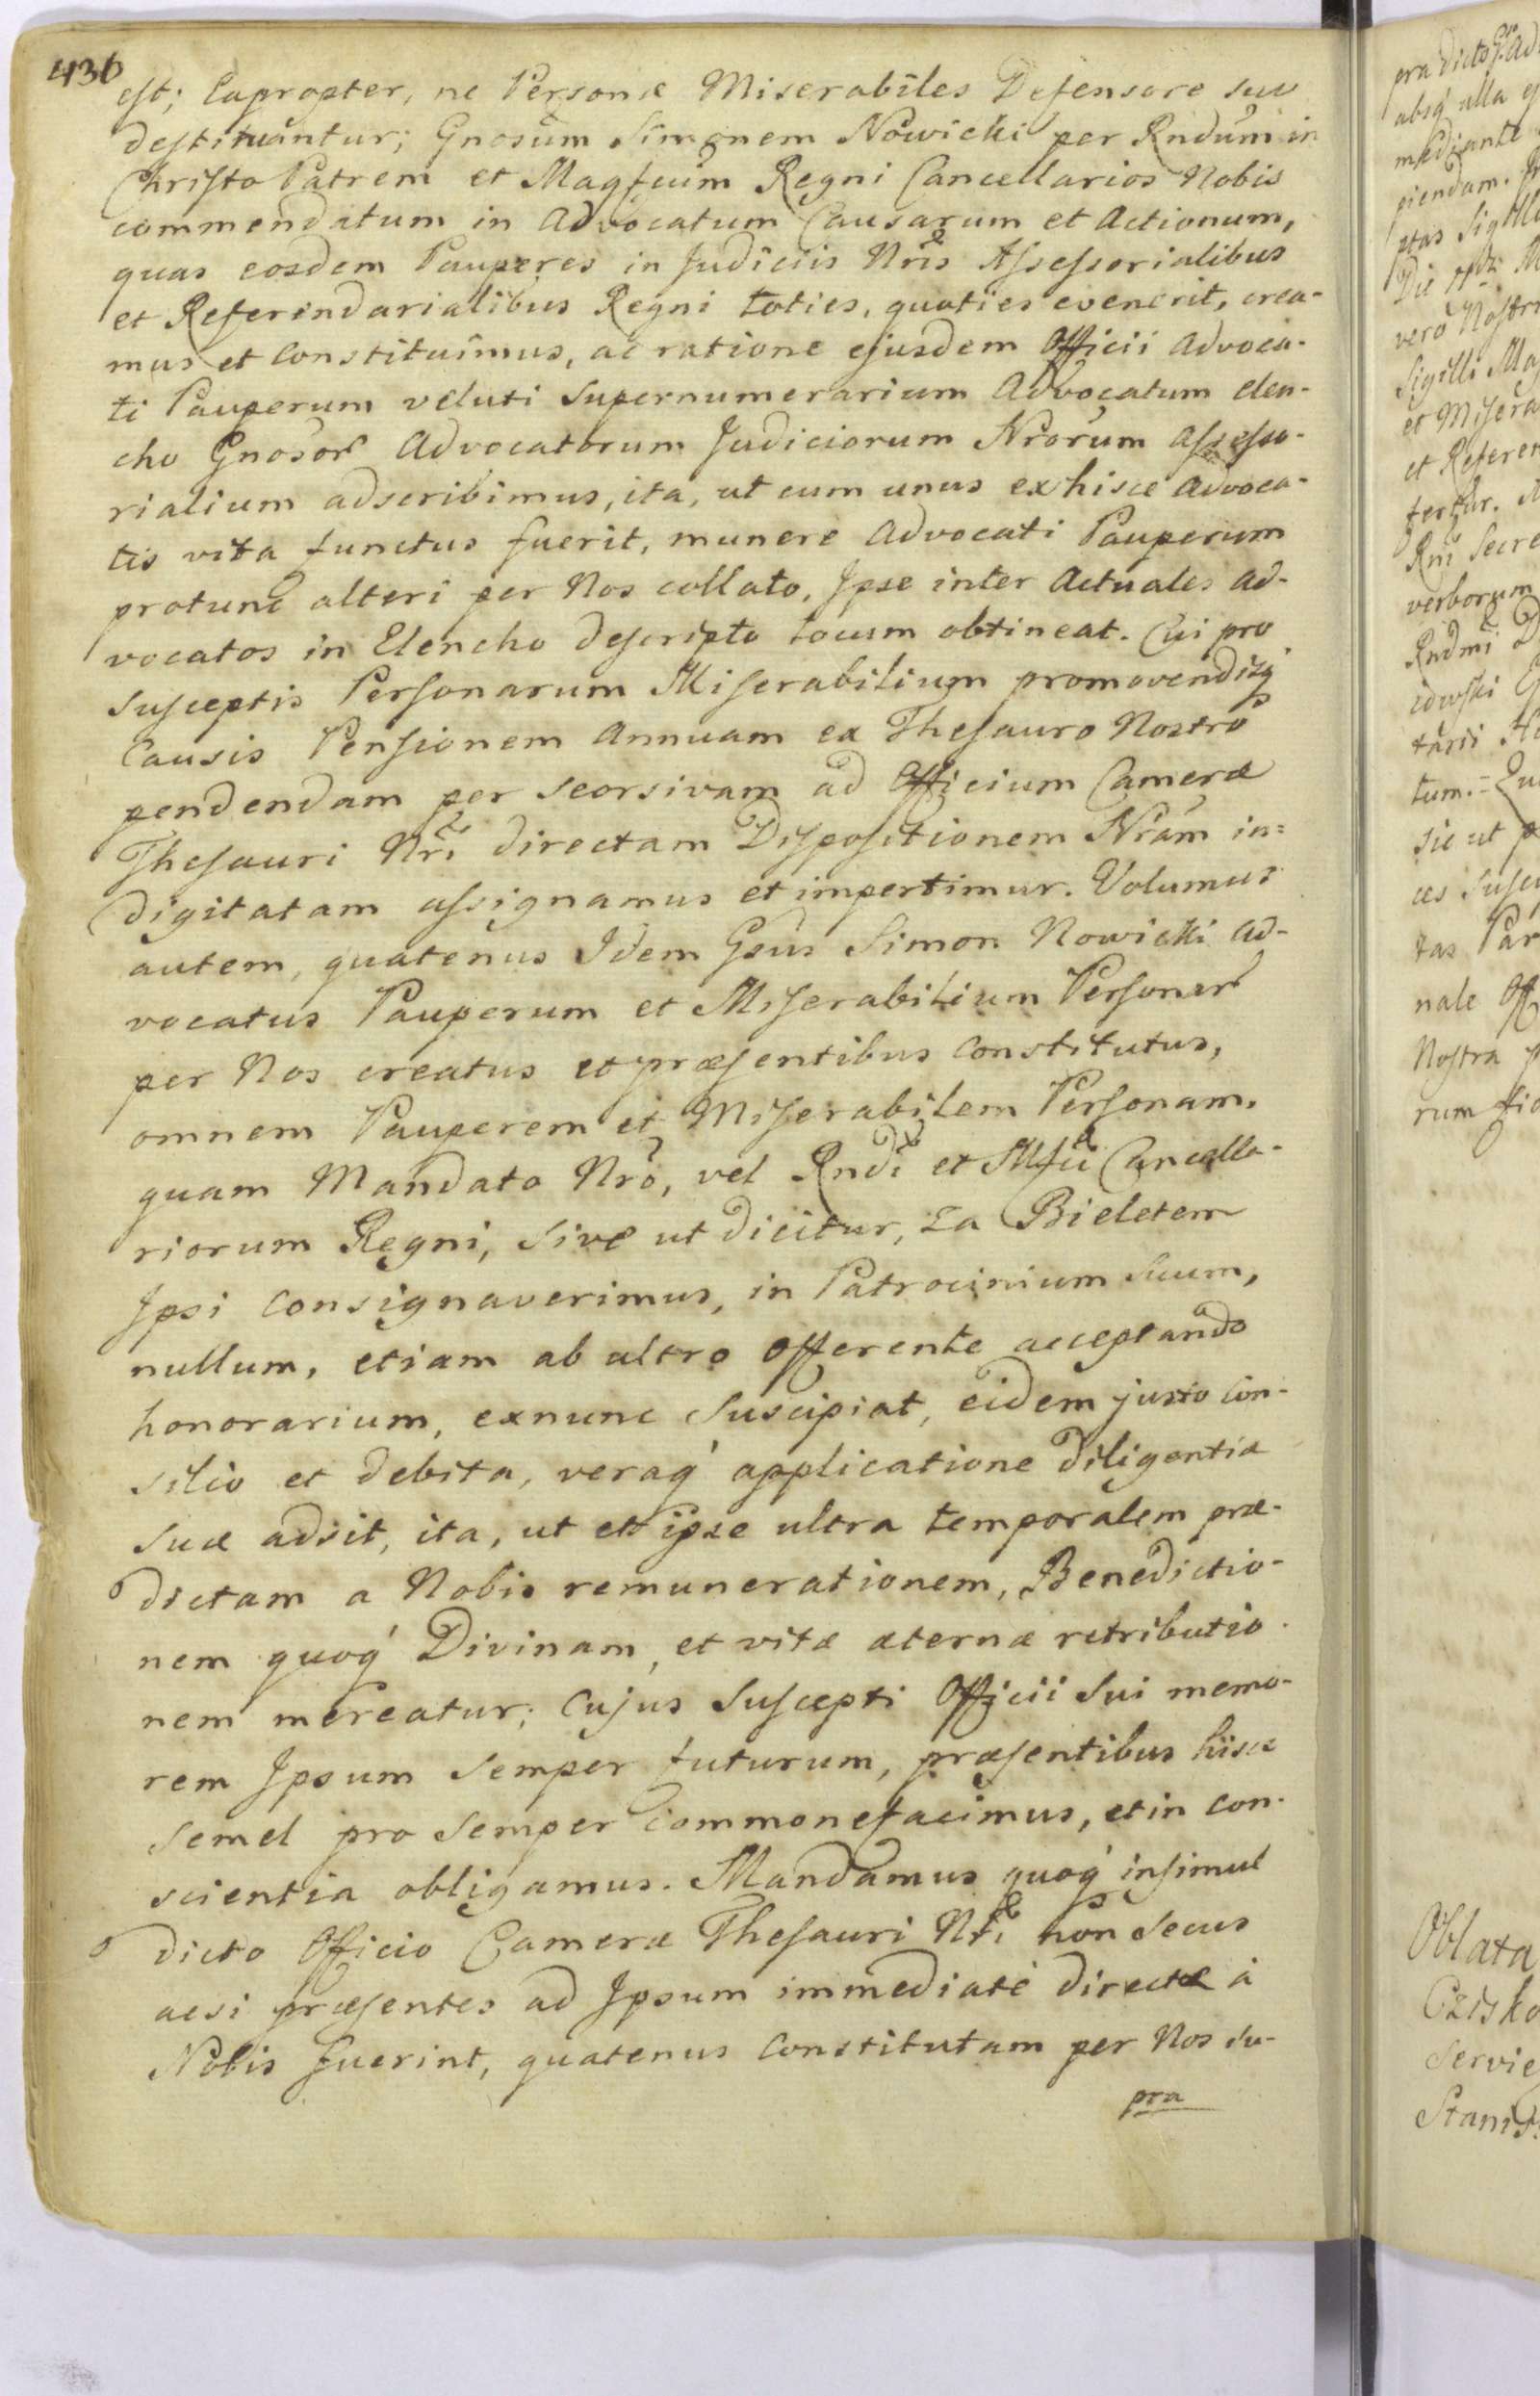 436
est; Eapropter, ne Personæ Miserabiles Defensore suo
destituantur; Gnosum Simonem Nowicki per Rndum in
Christo Patrem et Magfcum Regni Cancellarios Nobis
commendatum in Advocatum Causarum et Actionum,
quas eosdem Pauperes in Judiciis Nris Assessorialibus
et Referendarialibus Regni toties, quoties evenerit, crea-
mus et Constituimus, ac ratione ejusdem Officii Advoca-
ti Pauperum veluti Supernumerarium Advocatum elen-
cho Gnosor Advocatorum Judiciorum Nrorum Assesso-
rialium adscribimus, ita, ut cum unus ex hisce Advoca-
tis vita functus fuerit, munere Advocati Pauperum
protunc alteri per Nos collato, Ipse inter Actuales Ad-
vocatos in Elencho descripto locum obtineat. Cui pro
susceptis Personarum Miserabilium promovendisq'
Causis Pensionem Annuam ex Thesauro Nostro
pendendam per seorsivam ad Officium Cameræ
Thesauri Nri directam Dispositionem Nram in=
digitatam assignamus et impertimur. Volumus
autem, quatenus Idem Gsus Simon Nowicki Ad-
vocatus Pauperum et Miserabilium Personar
per Nos creatus et præsentibus Constitutus,
omnem Pauperem et Miserabilem Personam,
quam Mandato Nro, vel Rndi et Mfci Cancella-
riorum Regni, Sive ut dicitur, Za Bieletem
Ipsi Consignaverimus, in Patrocinium Suum,
nullum, etiam ab ultro Offerente acceptando
honorarium, exnunc Suscipiat, eidem justo Con-
silio et debita, veraq' applicatione diligentiæ
suæ adsit, ita, ut et ipse ultra temporalem præ-
dictam a Nobis remunerationem, Benedictio-
nem quoq' Divinam, et vitæ æternæ retributio-
nem mereatur; Cujus Suscepti Officii Sui memo-
rem Ipsum Semper futurum, præsentibus hisce
Semel pro Semper commonefacimus, et in con-
scientia obligamus. Mandamus quoq' insimul
dicto Officio Cameræ Thesauri Nri non Secus
acsi præsentes ad Ipsum immediatè directæ à
Nobis fuerint, quatenus Constitutam per Nos su-
pra
absq' ulla
mediante
piendam.
ptas
vero Nostr
Sigilli Ma
et Misera
et Referen
fertur.
Rni Secre
verborum
Rndmi D
tum.
sic ut p
tas Par
nale Off
Nostra
rum
Oblata
Czisko
Servie
Stanis